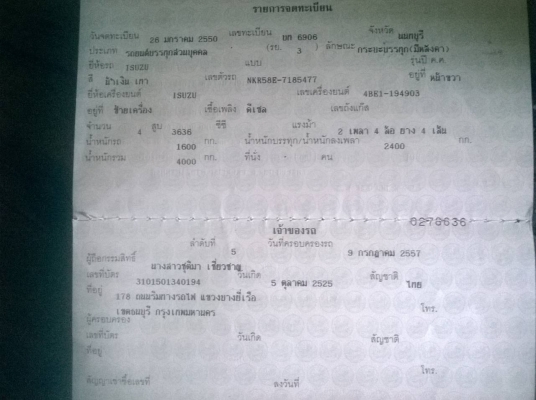 รายการจดทะเบียน
วันจดทะเบียน 26 มกราคม 2550 เลขทะเบียน 6906 จังหวัด นนทบุรี
ประเภท รถยนต์บรรทุกส่วนบุคคล (รย. 3 ) ลักษณะ กระบะบรรทุก(มีหลังคา)
ยี่ห้อรถ ISUZU แบบ รุ่นปี ค.ศ
สี เทา เลขตัวรถ NKR58E-7185477 อยู่ที่ หน้าขวา
ยี่ห้อเครื่องยนต์ ISUZU เลขเครื่องยนต์ 4BE1-194903
อยู่ที่ ซ้ายเครื่อง เชื้อเพลิง ดีเซล เลขถังแก๊ส
จำนวน 4 สูบ 3636 ซีซี แรงม้า 2 เพลา 4 ล้อ ยาง 4 เส้น
น้ำหนักรถ 1600 กก. น้ำหนักบรรทุก/น้ำหนักลงเพลา 2400 กก.
น้ำหนักรวม 4000 กก. ที่นั่ง - คน
6278636
เจ้าของรถ
ลำดับที่ 5 วันที่ครอบครองรถ 9 กรกฎาคม 2557
ผู้ถือกรรมสิทธิ์ นางสาวชุติมา เชี่ยวชาญ
เลขที่บัตร 3101501340194 วันเกิด 5 ตุลาคม 2525 สัญชาติ ไทย
ที่อยู่ 178 ถนนริมทางรถไฟ แขวงบางยี่เรือ
เขตธนบุรี กรุงเทพมหานคร โทร.
ผู้ครอบครอง
เลขที่บัตร วันเกิด สัญชาติ
ที่อยู่
โทร.
สัญญาเช่าซื้อเลขที่ ลงวันที่